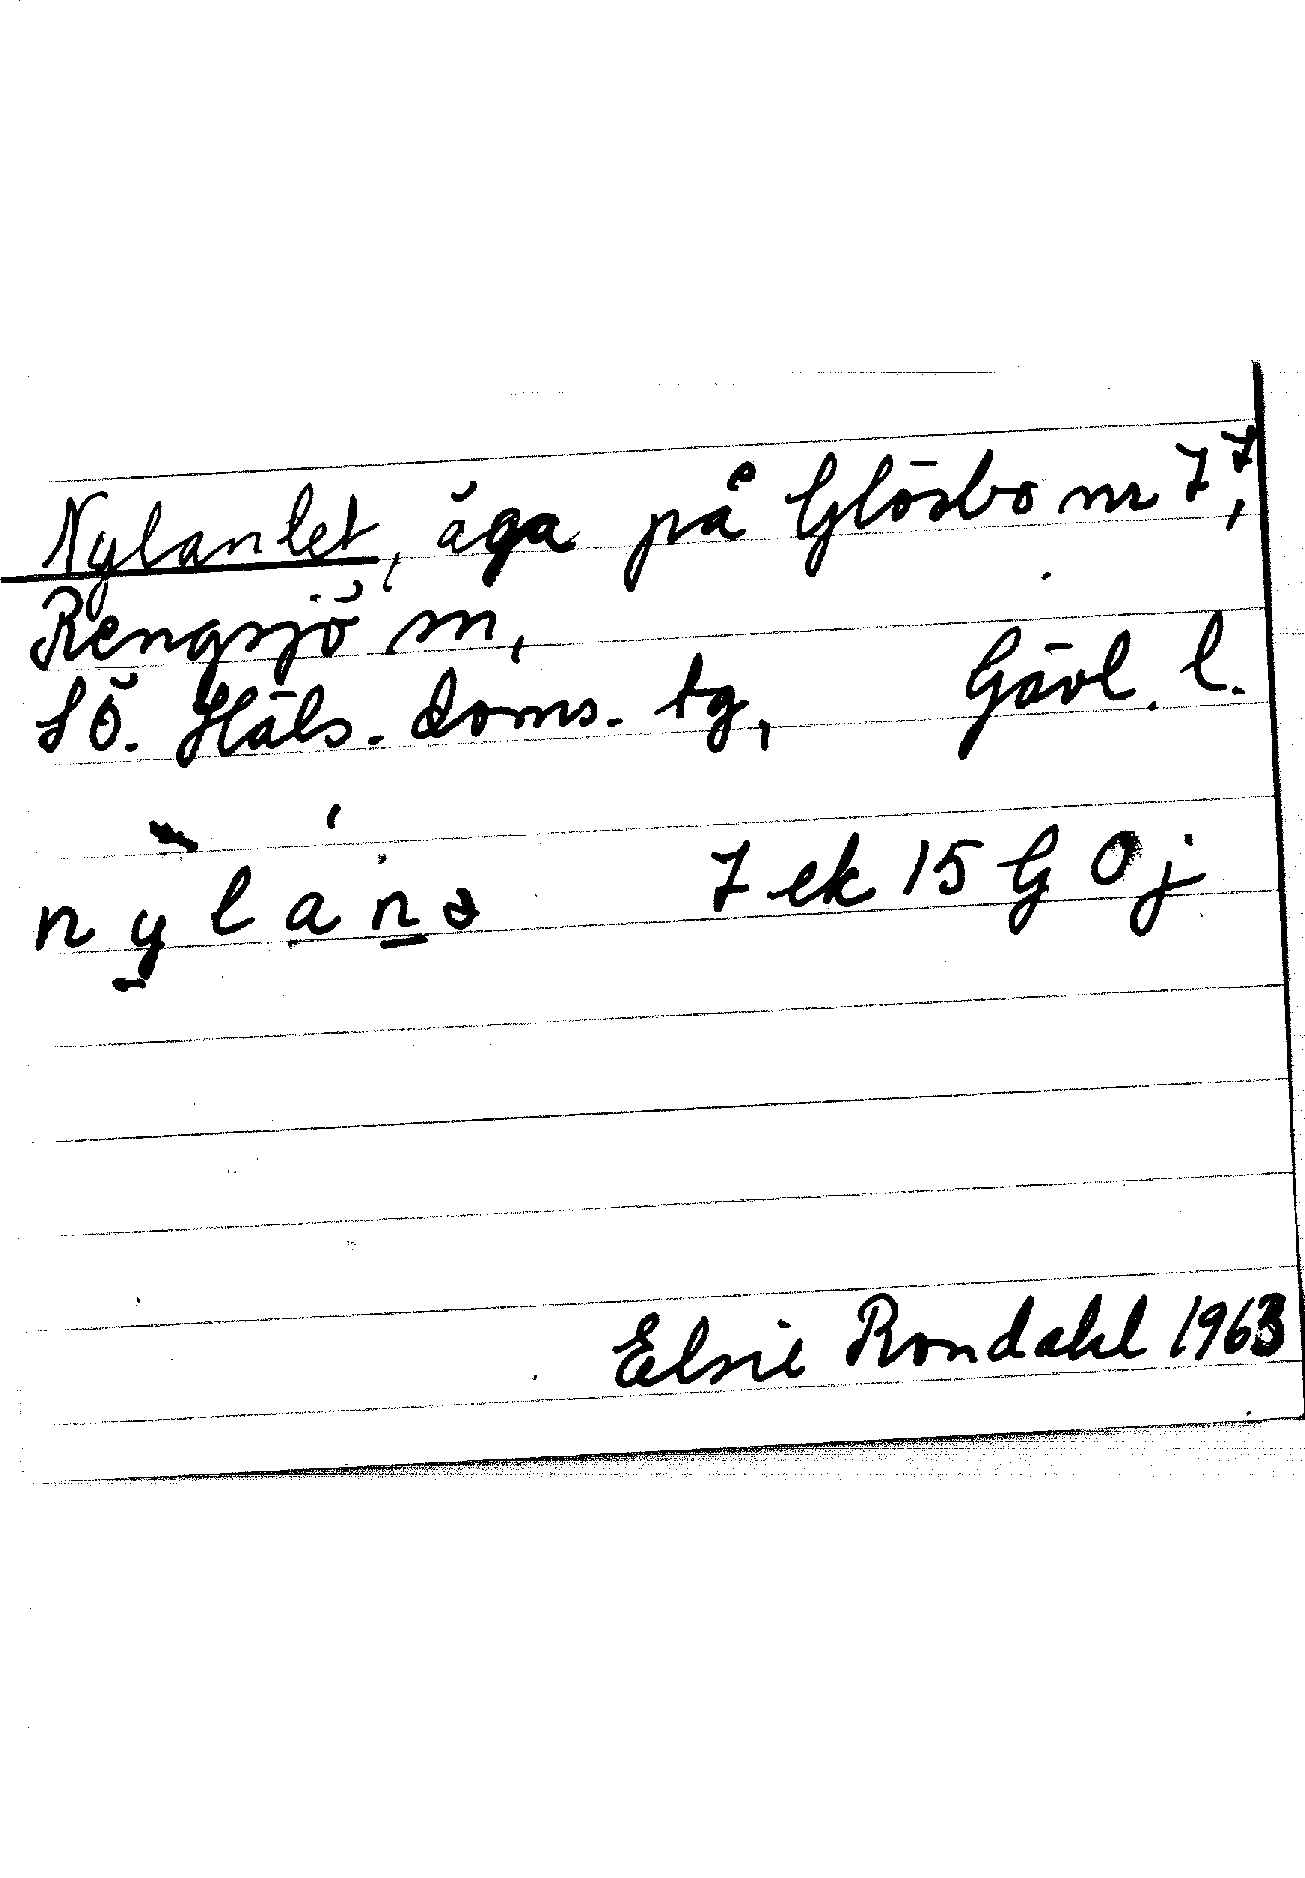 Nylanlet, äga på Glösbo nr 7⁷,
Rengsjö sn,
SÖ. Häls. doms. tg, Gävl. l.
nylánə 7 ek 15 G Ö j
Elsie Rondahl 1963